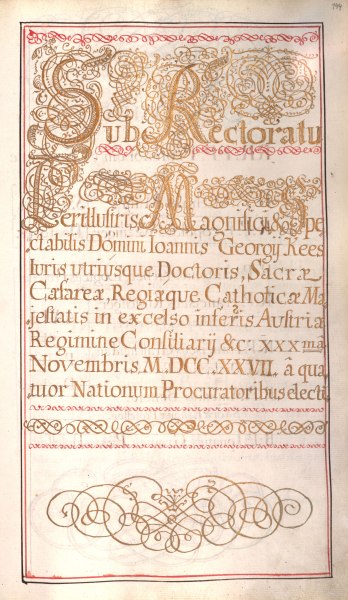 194
Sub Rectoratu
Perillustris, Magnifici, & Spe
ctabilis Domini Ioannis Georgij Kees
Iuris utriusque Doctoris, Sacræ
Cæsareæ, Regiæque Catholicæ Ma
jestatis in excelso inferis Austriæ
Regimine Consiliarij &c: xxxmâ
Novembris M.DCC.XXVII. â qua
tuor Nationum Procuratoribus electi